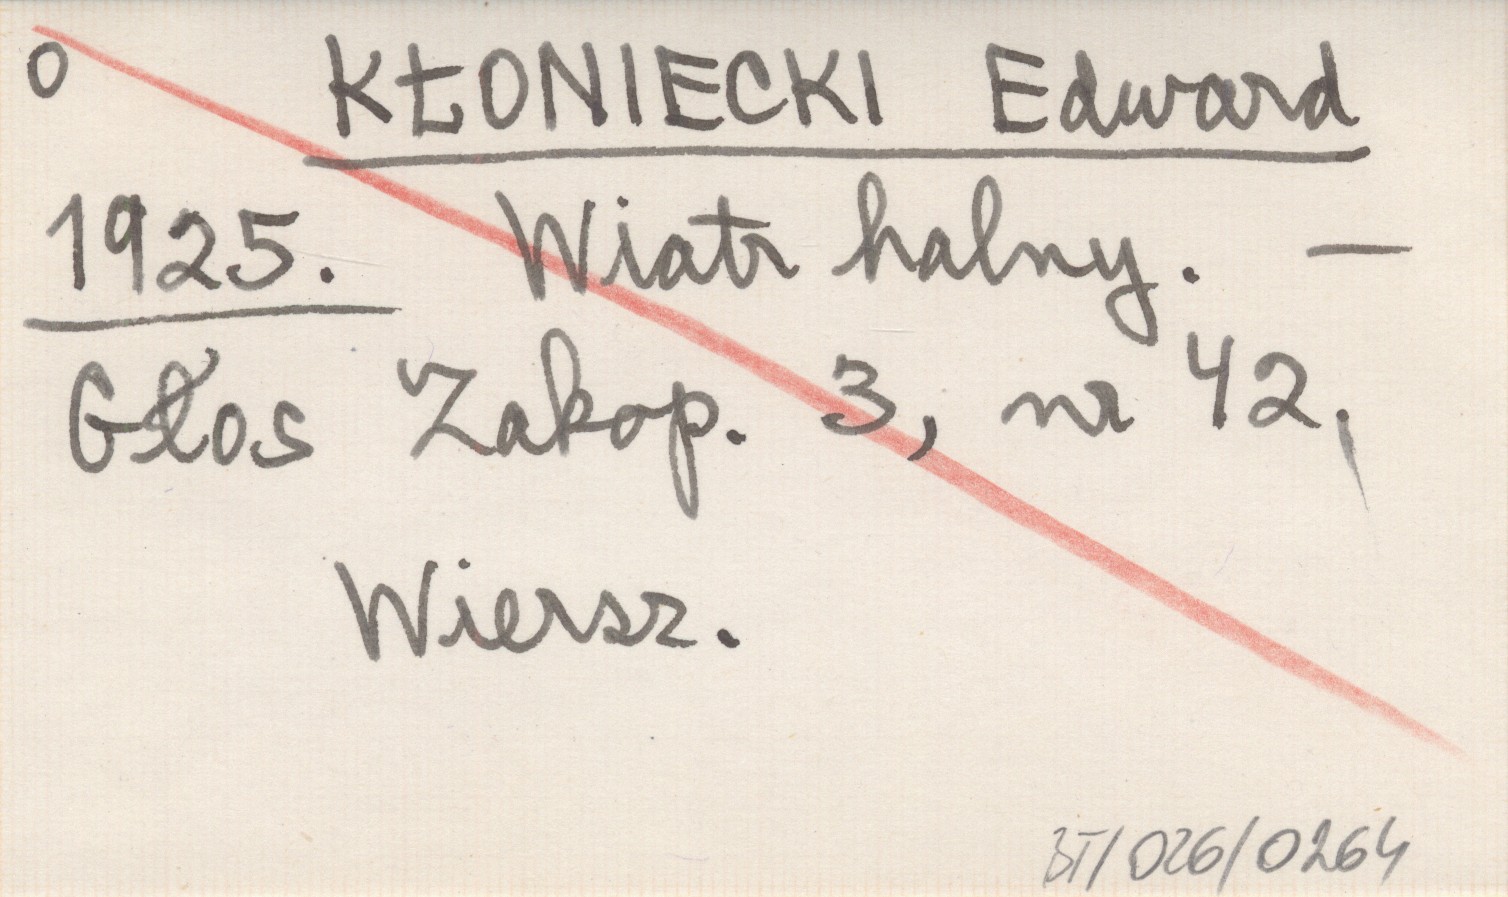 O KŁONIECKI Edward
1925. Wiatr halny. —
Głos Zakop. 3, nr 42,
Wiersz.
BT/026/0264